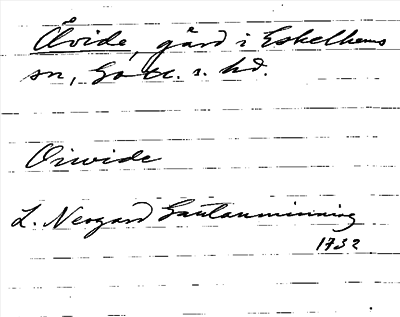 Åvide, gård i Eskelhems
sn, Gotl. s. hd.
Oiwide
L. Neogard Gautauminning
1732